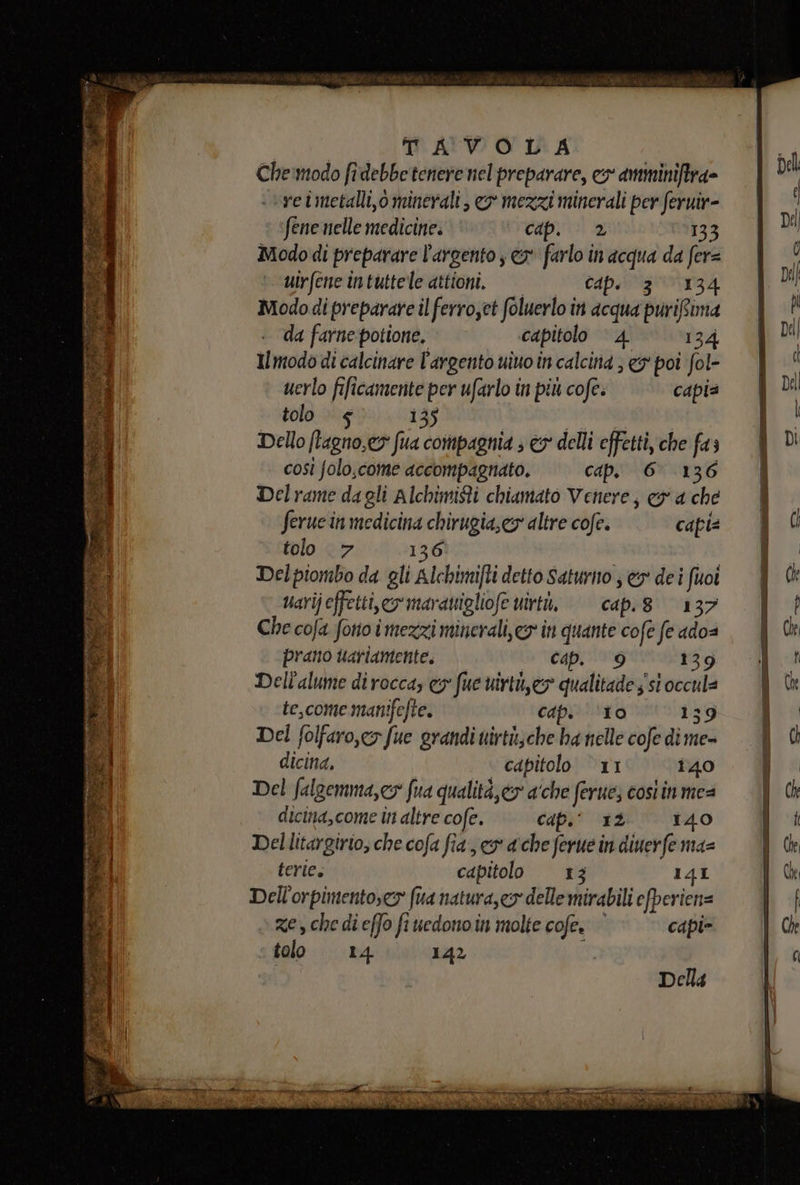 TAVOLA
Che modo ſi debbe tenere nel preparare, & amminiſtra=
re i metalli, ò minerali, & mezzi minerali per ſeruir=
ſene nelle medicine. cap. 2 133
Modo di preparare l'argento, & farlo in acqua da ſer=
uirſene in tutte le attioni. cap. 3 134
Modo di preparare il ferro, et ſoluerlo in acqua purißima
da farne potione. capitolo 4 134
Il modo di calcinare l'argento uiuo in calcina, & poi ſol-
uerlo fiſicamente per uſarlo in più coſe. capi=
tolo 5 135
Dello ſtagno, & ſua compagnia, & delli effetti, che fa,
coſi ſolo, come accompagnato. cap. 6 136
Del rame da gli Alchimiſti chiamato Venere, & a che
ſerue in medicina chirugia, & altre coſe. capi=
tolo 7 136
Del piombo da gli Alchimiſti detto Saturno, & de i ſuoi
uarij effetti, & marauigliоſe uirtù. cap. 8 137
Che coſa ſono i mezzi minerali, & in quante coſe ſe ado=
prano uariamente. cap. 9 139
Dell'alume di rocca, & ſue uirtù, & qualitade, ſi occul=
te, come manifeſte. cap. 10 139
Del ſolfaro, & ſue grandi uirtù, che ha nelle coſe di me-
dicina. capitolo 11 140
Del ſalgemma, & ſua qualità, & a che ſerue, coſi in me=
dicina, come in altre coſe. cap. 12 140
Del litargirio, che coſa ſia, & a che ſerue in diuerſe ma=
terie. capitolo 13 141
Dell'orpimento, & ſua natura, & delle mirabili eſperien=
ze, che di eſſo ſi uedono in molte coſe. capi-
tolo 14 142
Della